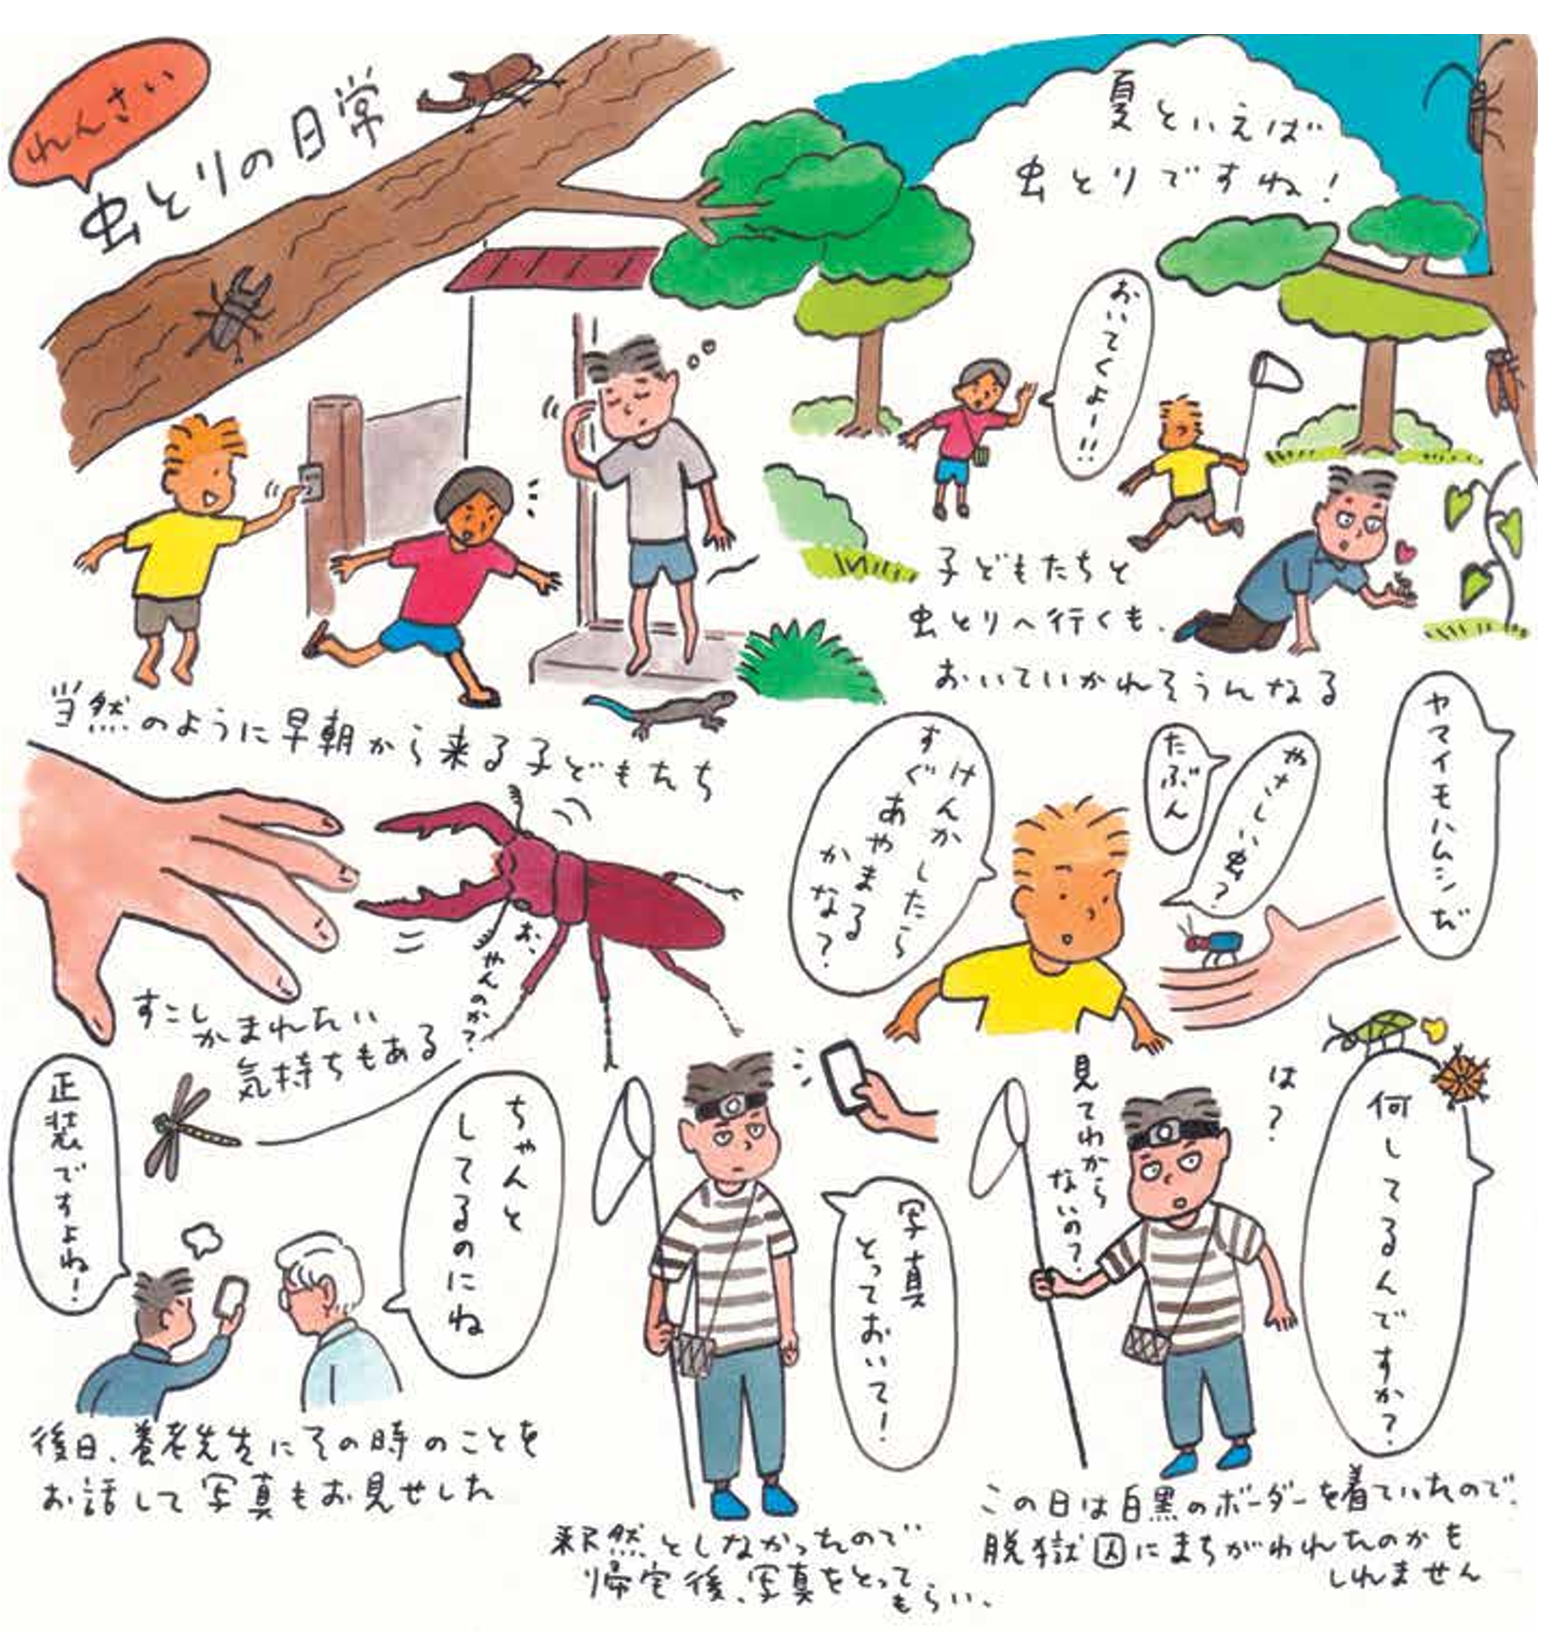 れんさい
虫とりの日常
夏といえば
虫とりですね!
当然のように早朝から来る子どもたち
おいてくよー!!
子どもたちと
虫とりへ行くも、
おいていかれそうになる
ヤマイモハムシだ
やさしい虫?
たぶん
けんかしたら
すぐあやまる
かな?
お、やんのか?
すこし
かまれたい
気持ちもある
何してるんですか?
は?
見てわから
ないの?
この日は白黒のボーダーを着ていたので、
脱獄囚にまちがわれたのかも
しれません
写真
とっておいて!
釈然としなかったので
帰宅後、写真をとって
もらい、
ちゃんと
してるのにね
正装ですよね!
後日、養老先生にその時のことを
お話して写真もお見せした